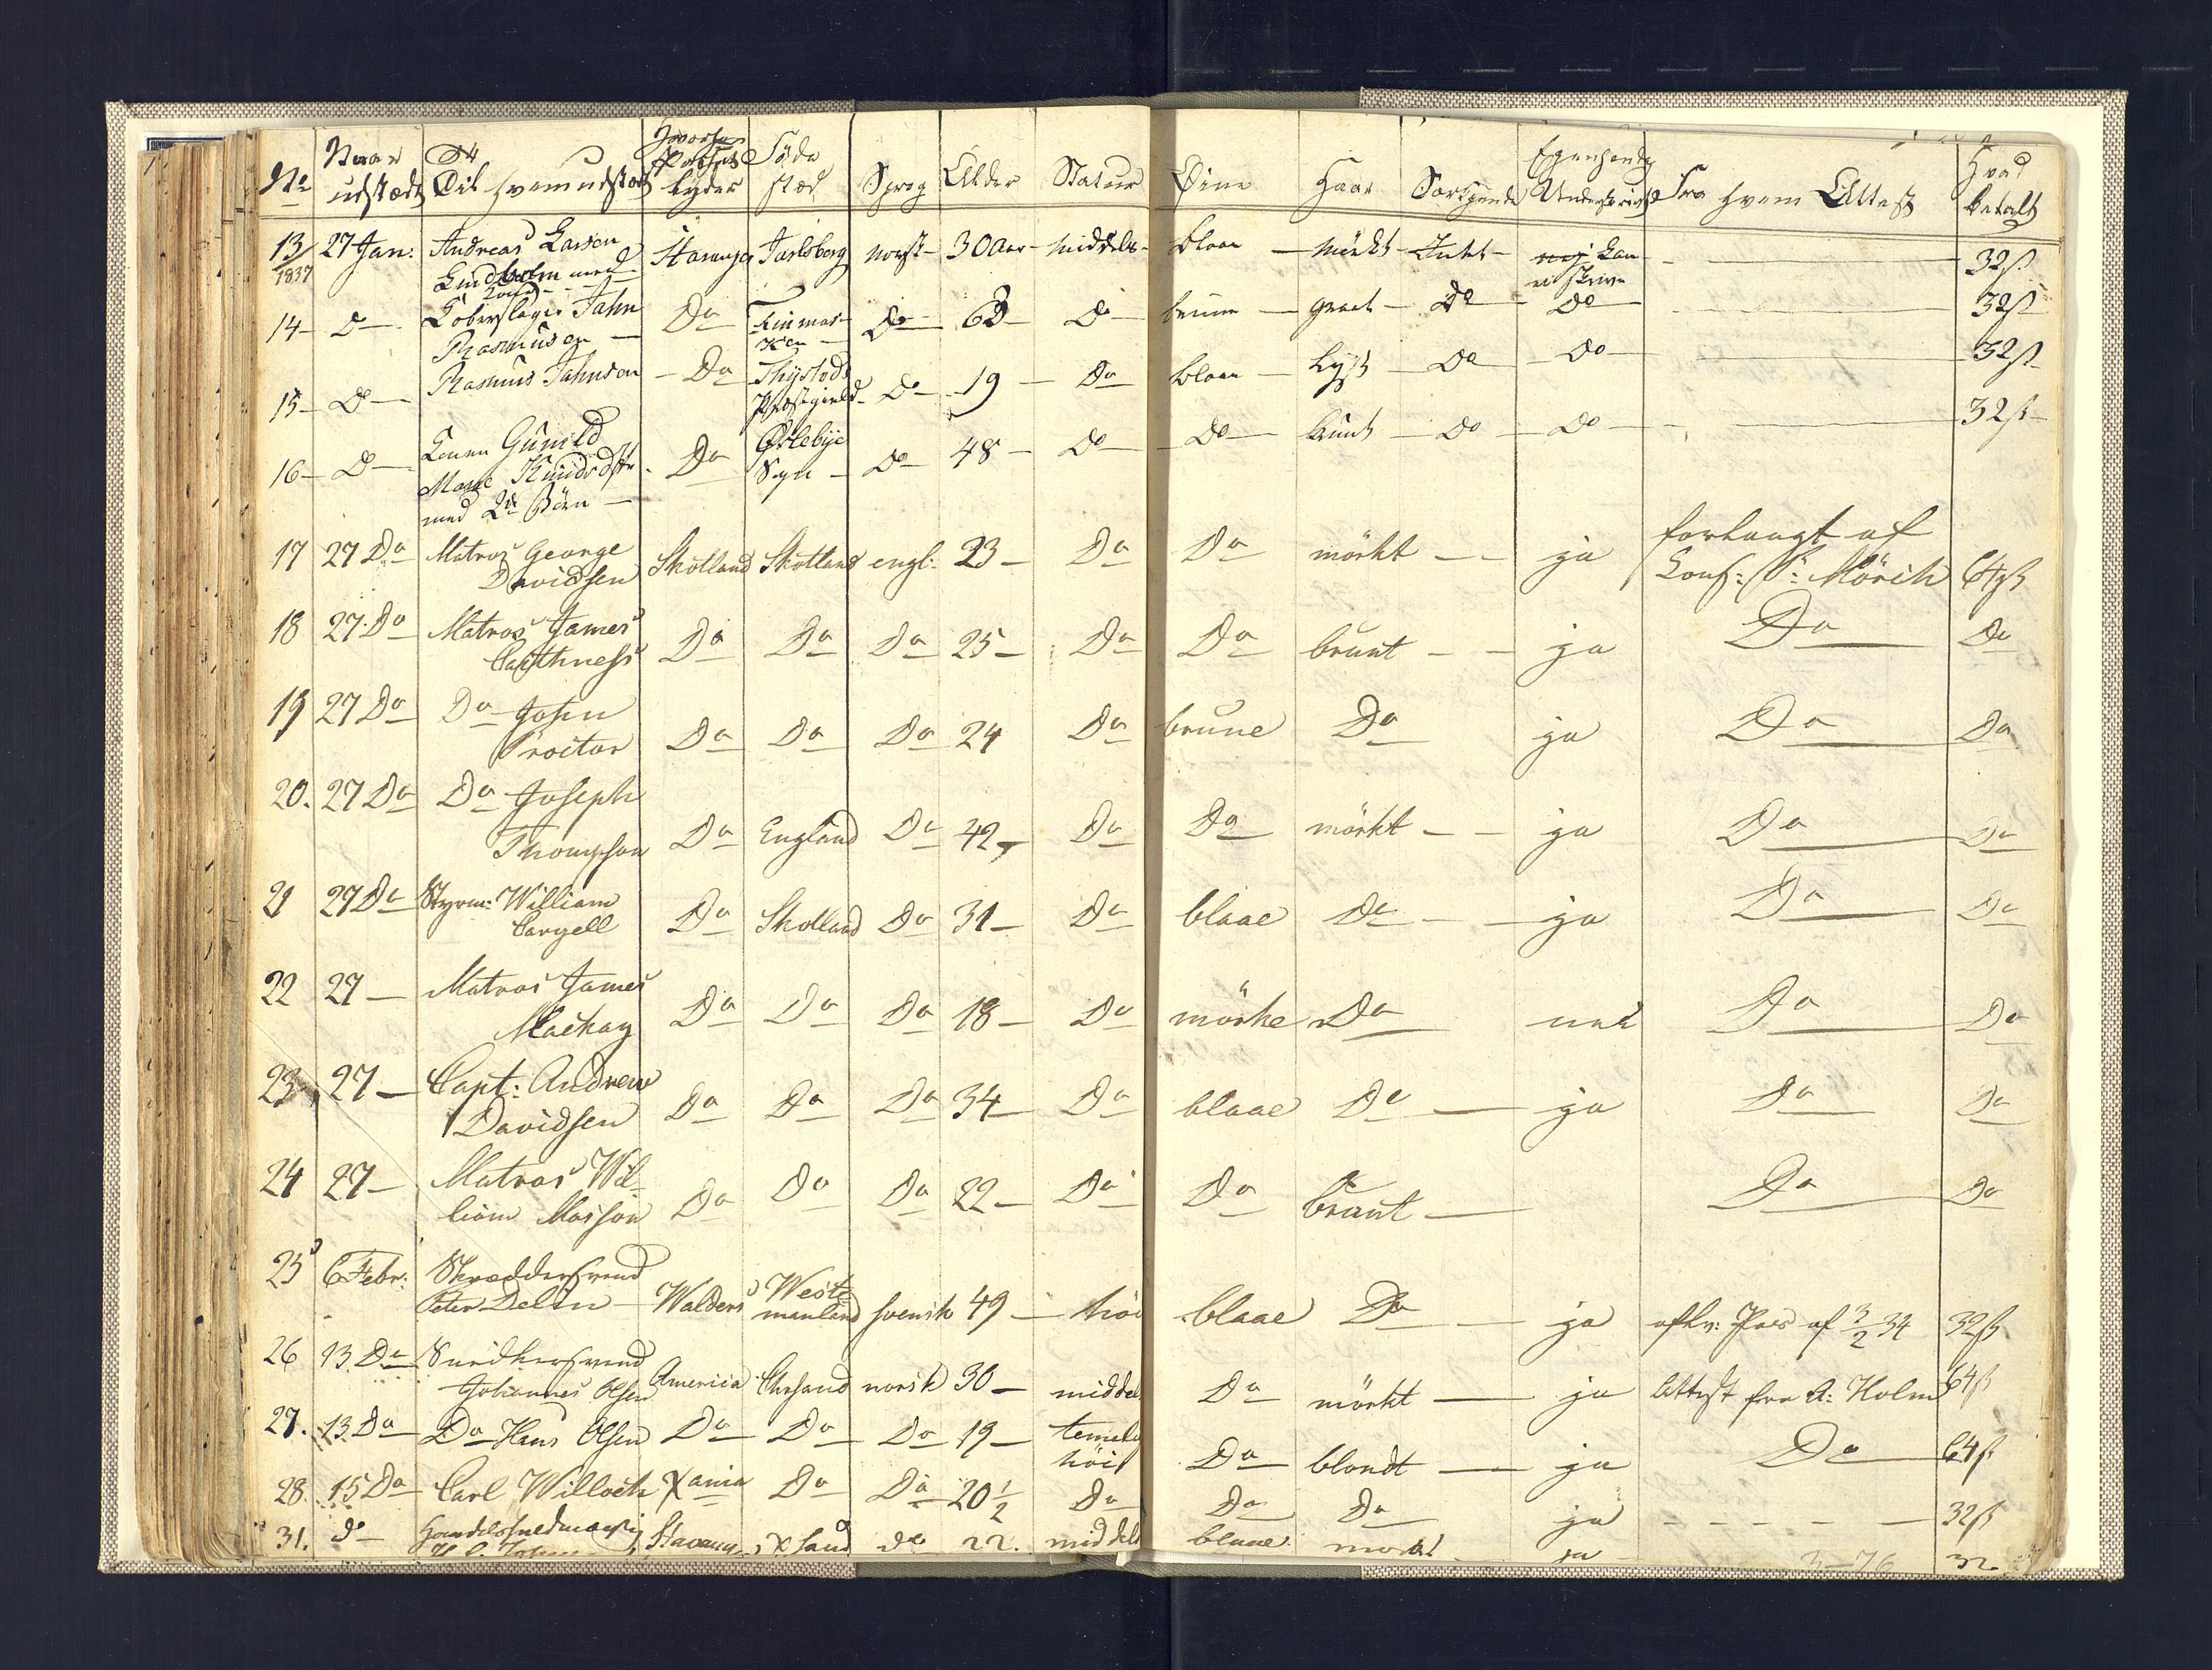 No Naar udstædt Til hvem udstædt Hvorhen Passet lyder Føde stæd Sprog Alder Statur Øine Haar Særkjende Egenhændig Underskrivt Fra hvem Attest Hvad betalt
13/1837 27 Jan: Andreas Larsen Lindholm med Stavanger Jarlsberg norsk 30 Aar middels blaae mörkt Intet kan ei skrive 32 ß
14 Do Koberslager Jahn Rasmusen Do Finmarken Do 63 Do brune graat Do Do 32 ß
15 Do Rasmus Jahnsen Do Præstegield Do 19 Do blaae lyst Do Do 32 ß
16 Do Konen Gunild Marie Knudsdtr med 2de Börn Do Sogn Do 48 Do Do brunt Do Do 32 ß
17 27 Do Matros George Davidsen Skotland Skotland engl: 23 Do Do mörkt ja forlangt af Cons: Mörch 64 ß
18 27 Do Matros James Caithness Do Do Do 25 Do Do brunt ja Do Do
19 27 Do Do John Proctor Do Do Do 24 Do brune Do ja Do Do
20. 27 Do Do Joseph Thompson Do England Do 42 Do Do mörkt ja Do Do
21 27 Do Styrm: William Cargell Do Skotland Do 31 Do blaae Do ja Do Do
22 27 Matros James Mackay Do Do Do 18 Do mörke Do nei Do Do
23 27 Capt: Andrew Davidsen Do Do Do 34 Do blaae Do ja Do Do
24 27 Matros William Masson Do Do Do 22 Do Do brunt Do Do
25 6 Febr: Skræddersvend Peter Delin Walders Westmanland svensk 49 höi blaae Do ja aflv: Pas af 3/2 34 32 ß
26 13 Do Snedkersvend Johannes Olsen America Chrsand norsk 30 middel Do mörkt ja Attest fra A: Holm 64 ß
27. 13 Do Do Hans Olsen Do Do Do 19 temelig höi Do blondt ja Do 64 ß
28. 15 Do Carl Willoch Xania Do Do 20 1/2 Do Do Do ja 32 ß
31. do Stavanger Xsand do 22. middels blaae mörkt ja 3-76 32